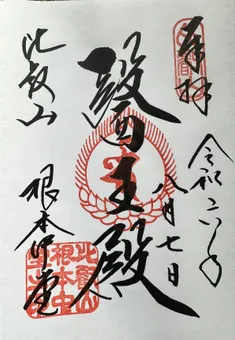 奉拝
令和六年
八月七日
醫王殿
比叡山
根本中堂
比叡山
根本中
堂之印